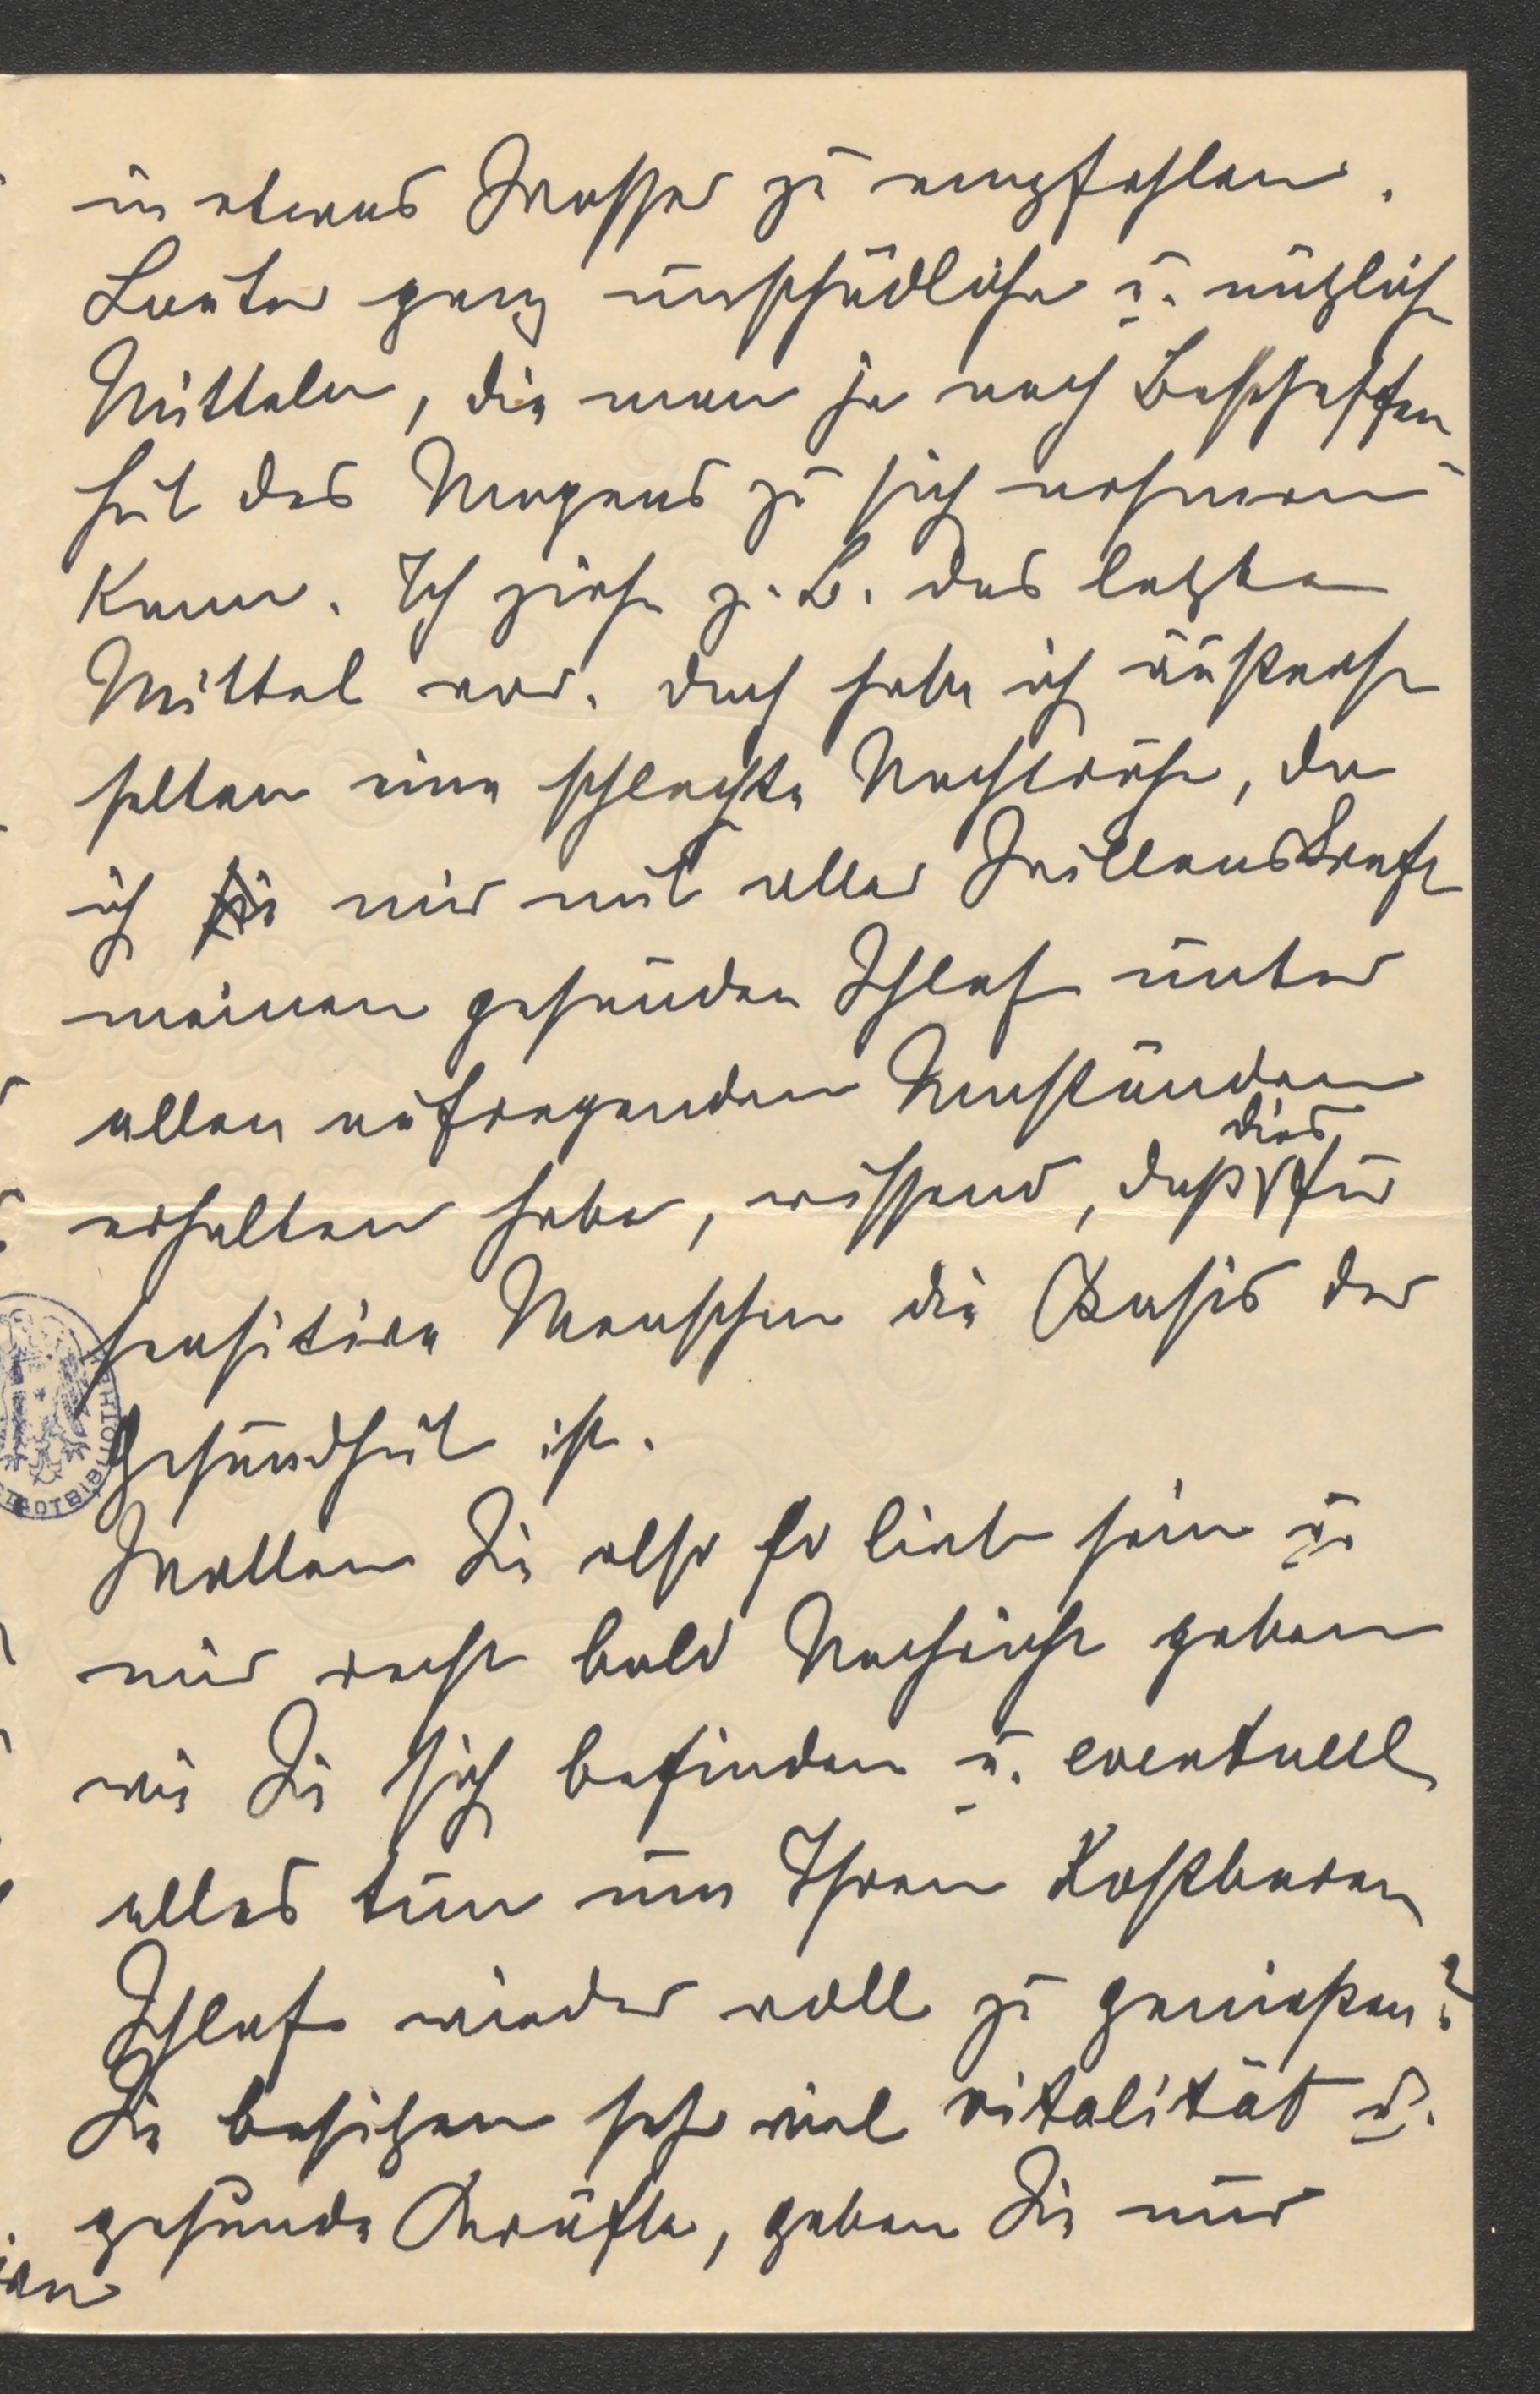 in etwas Wasser zu empfehlen.
Lauter ganz unschädliche u. nützliche
Mitteln, die man je nach Beschaffen
heit des Magens zu sich nehmen
kann. Ich ziehe z. B. das letzte
Mittel vor. Doch habe ich äußerst
selten eine schlechte Nachtruhe, da
ich mir mit aller Willenskraft
meinen gesunden Schlaf unter
allen aufregenden Umständen
dies
erhalten habe, wissend, daß für
sensitive Menschen die Basis der
Gesundheit ist.
Wollen Sie also so lieb sein u.
mir recht bald Nachricht geben
wie Sie sich befinden u. eventuell
alles tun um Ihren kostbaren
Schlaf wieder voll zu genießen?
Sie besitzen sehr viel vitalität u.
gesunde Kräfte, geben Sie nur
STADTBIBLIOTHEK